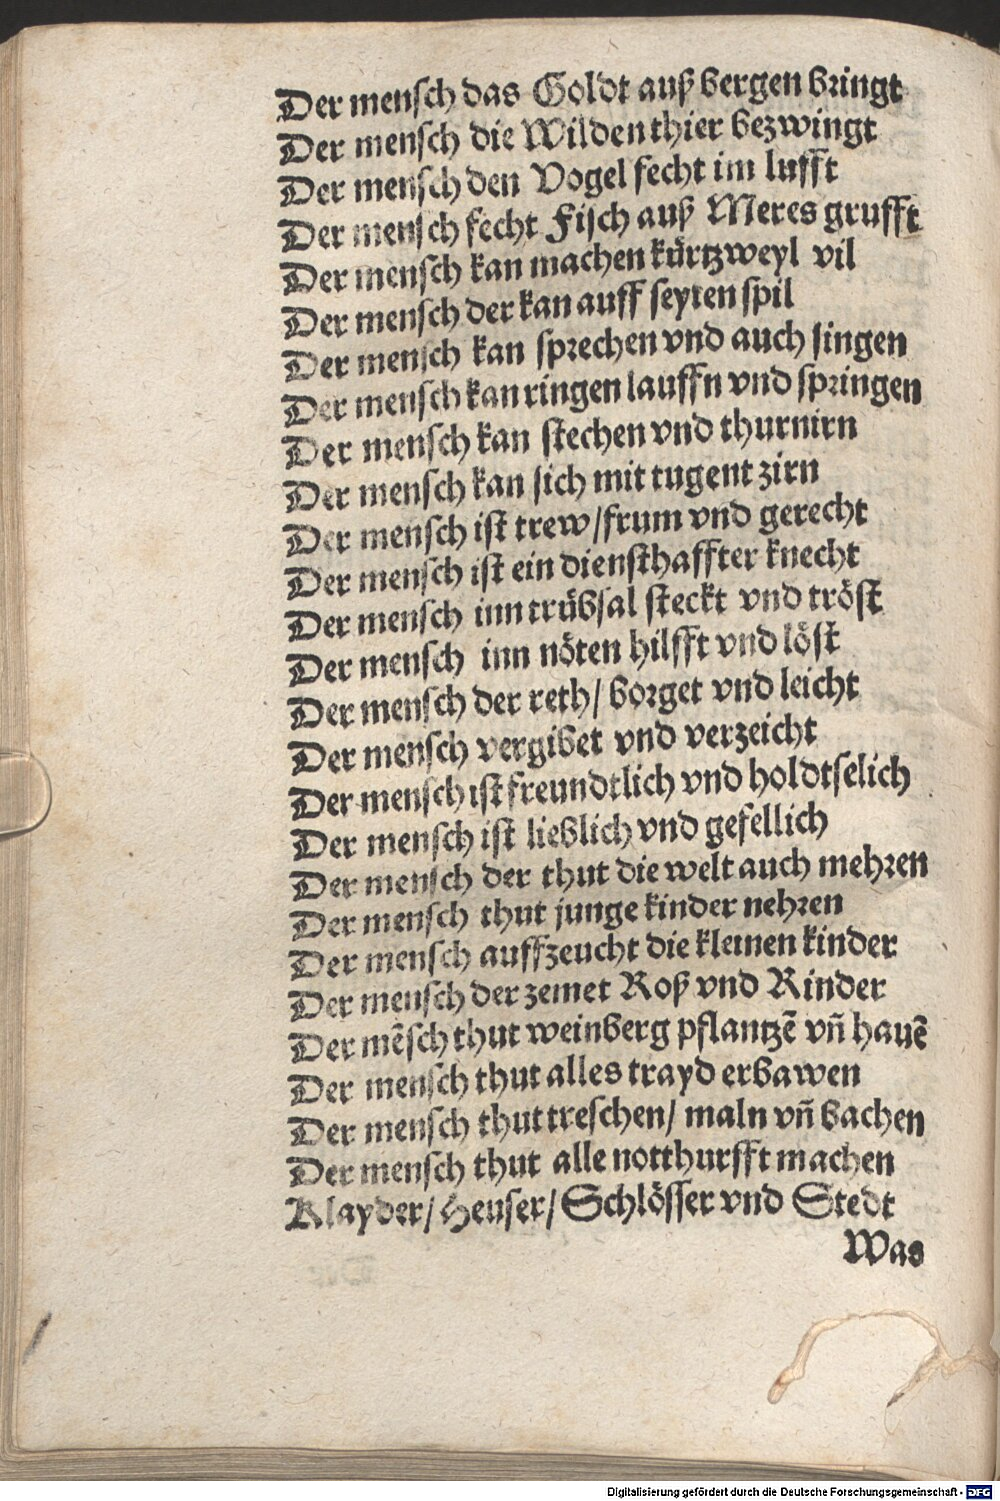 Der mensch das Goldt auß bergen bringt
Der mensch die Wilden thier bezwingt
Der mensch den Vogel fecht im lufft
Der mensch fecht Fisch auß Meres grufft
Der mensch kan machen kürtzweyl vil
Der mensch der kan auff seyten spil
Der mensch kan sprechen vnd auch singen
Der mensch kan ringen lauffn vnd springen
Der mensch kan stechen vnd thurnirn
Der mensch kan sich mit tugent zirn
Der mensch ist trew/frum vnd gerecht
Der mensch ist ein diensthaffter knecht
Der mensch inn trübsal steckt vnd tröst
Der mensch inn nöten hilfft vnd löst
Der mensch der reth/ borget vnd leicht
Der mensch vergibet vnd verzeicht
Der mensch ist freundtlich vnd holdtselich
Der mensch ist lieblich vnd gefellich
Der mensch der thut die welt auch mehren
Der mensch thut junge kinder nehren
Der mensch auffzeucht die kleinen kinder
Der mensch der zemet Roß vnd Rinder
Der mẽsch thut weinberg pflantzẽ vñ hauẽ
Der mensch thut alles trayd erbawen
Der mensch thut treschen/ maln vñ bachen
Der mensch thut alle notthurfft machen
Klayder/ Heuser/ Schlösser vnd Stedt
Was
Digitalisierung gefördert durch die Deutsche Forschungsgemeinschaft - DFG